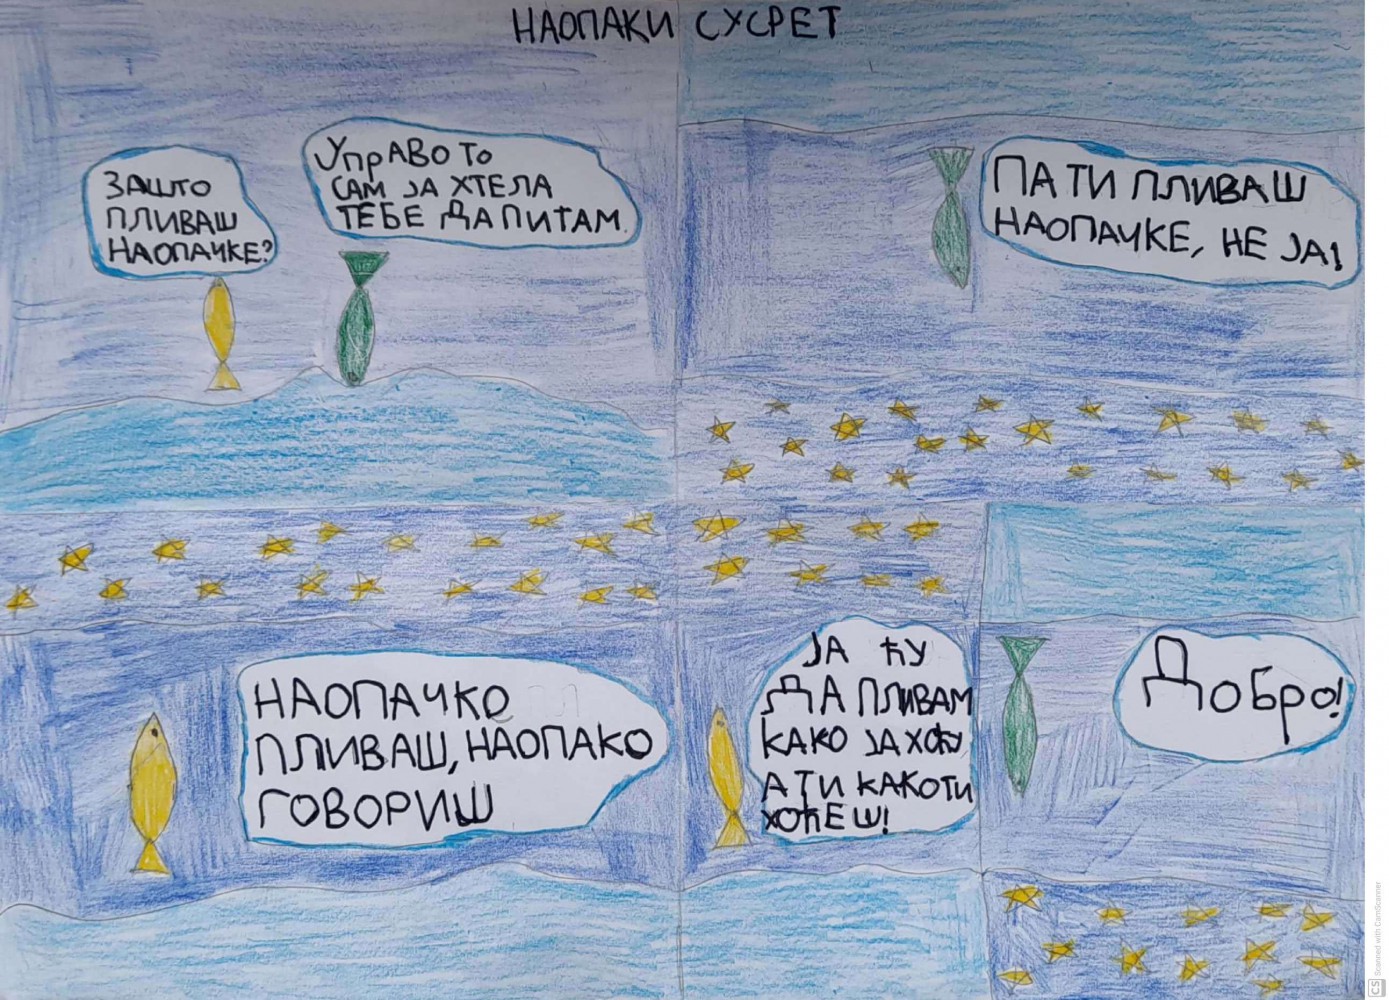 НАОПАКИ СУСРЕТ
ЗАШТО
ПЛИВАШ
НАОПАЧКЕ?
УпрАВО ТО
САМ ЈА ХТЕЛА
ТЕБЕ ДА ПИТАМ.
ПА ТИ ПЛИВАШ
НАОПАЧКЕ, НЕ ЈА!
НАОПАЧКЕ
ПЛИВАШ, НАОПАКО
ГОВОРИШ
ЈА ЋУ
ДА ПЛИВАМ
КАКО ЈА ХОЋУ
А ТИ КАКО ТИ
ХОЋЕШ!
Добро!
CS Scanned with CamScanner